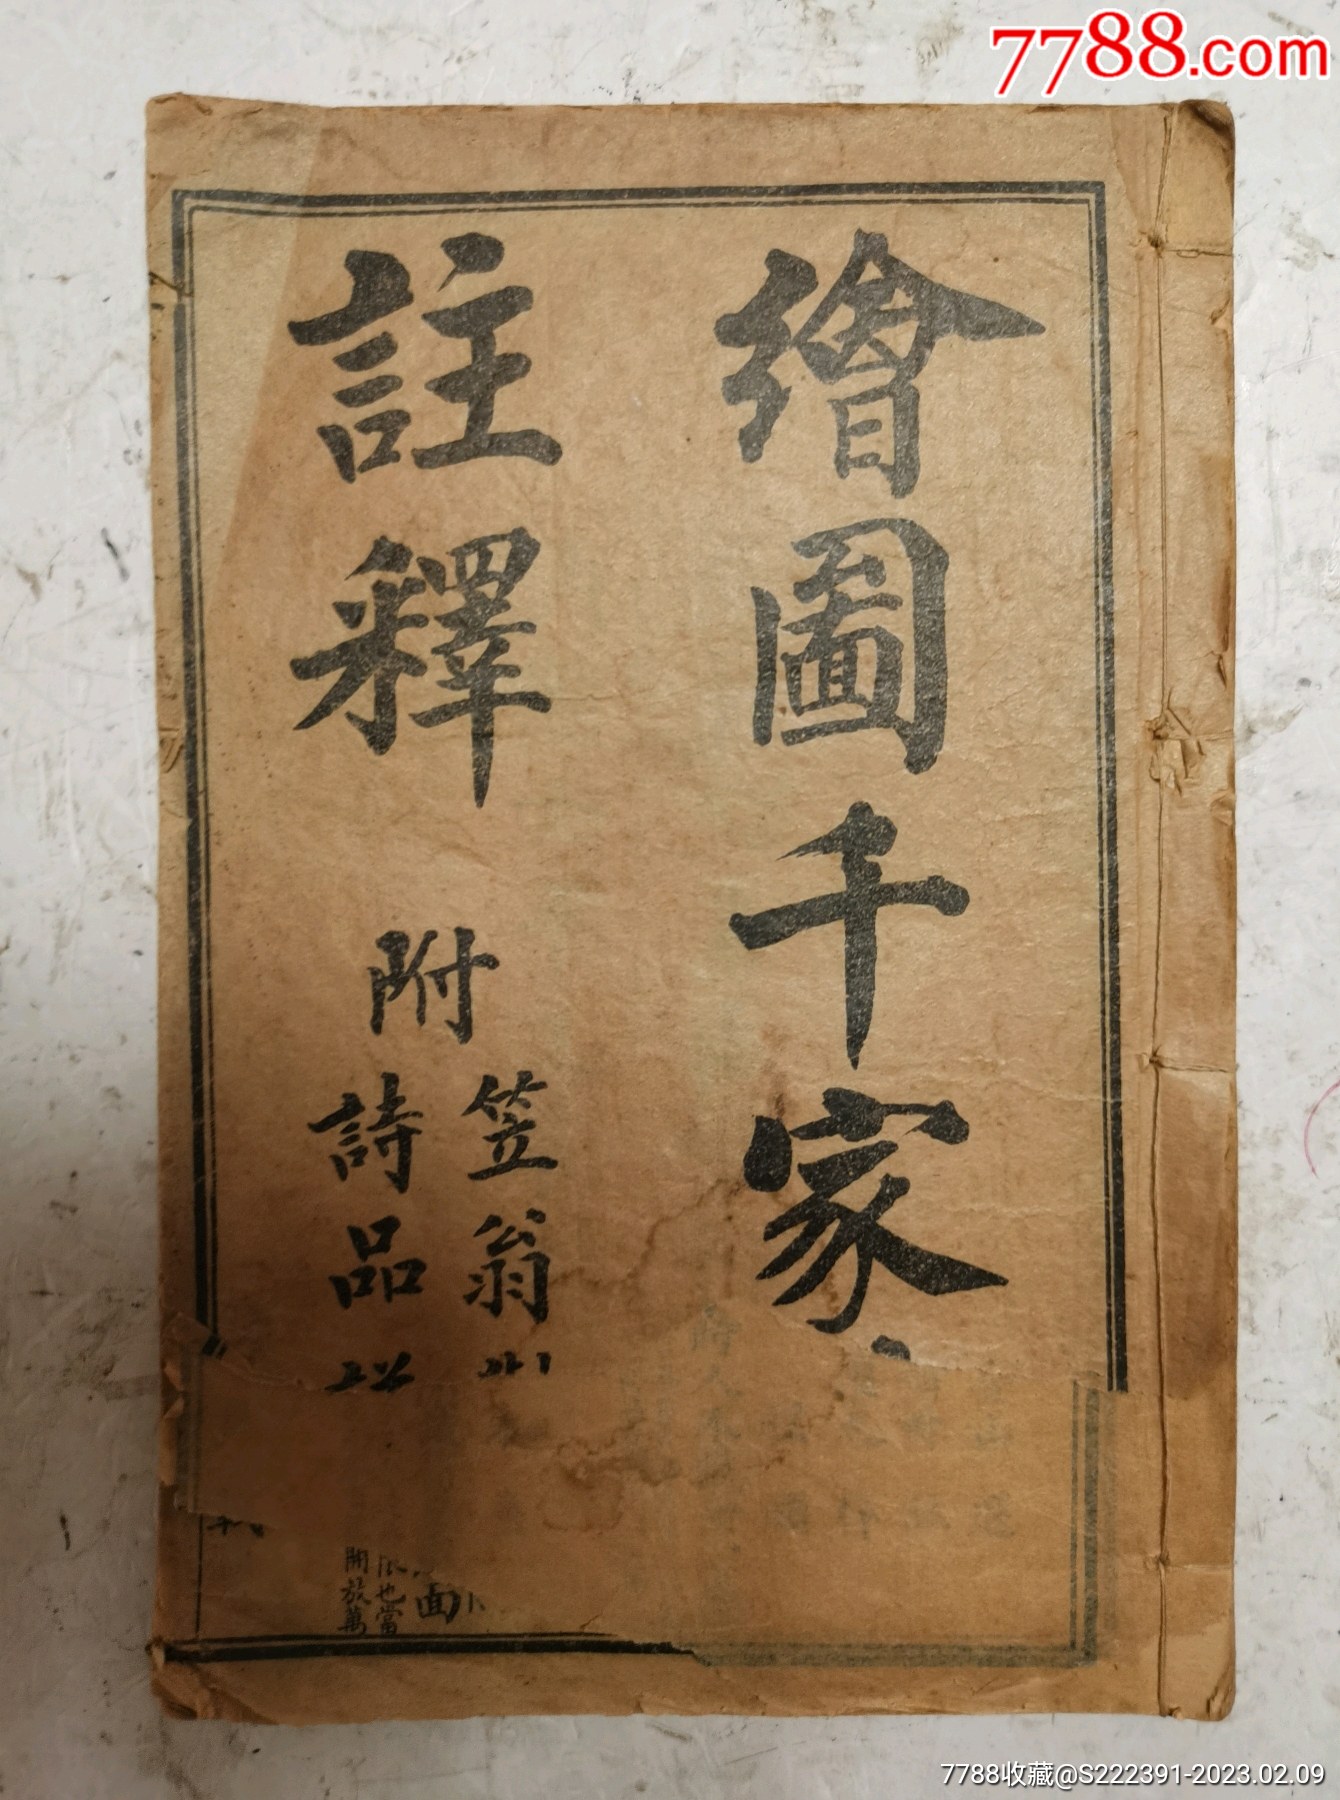 7788.com
繪圖千家
註釋
附
笠翁
詩品
面
限也當
開放萬
7788收藏@S222391-2023.02.09